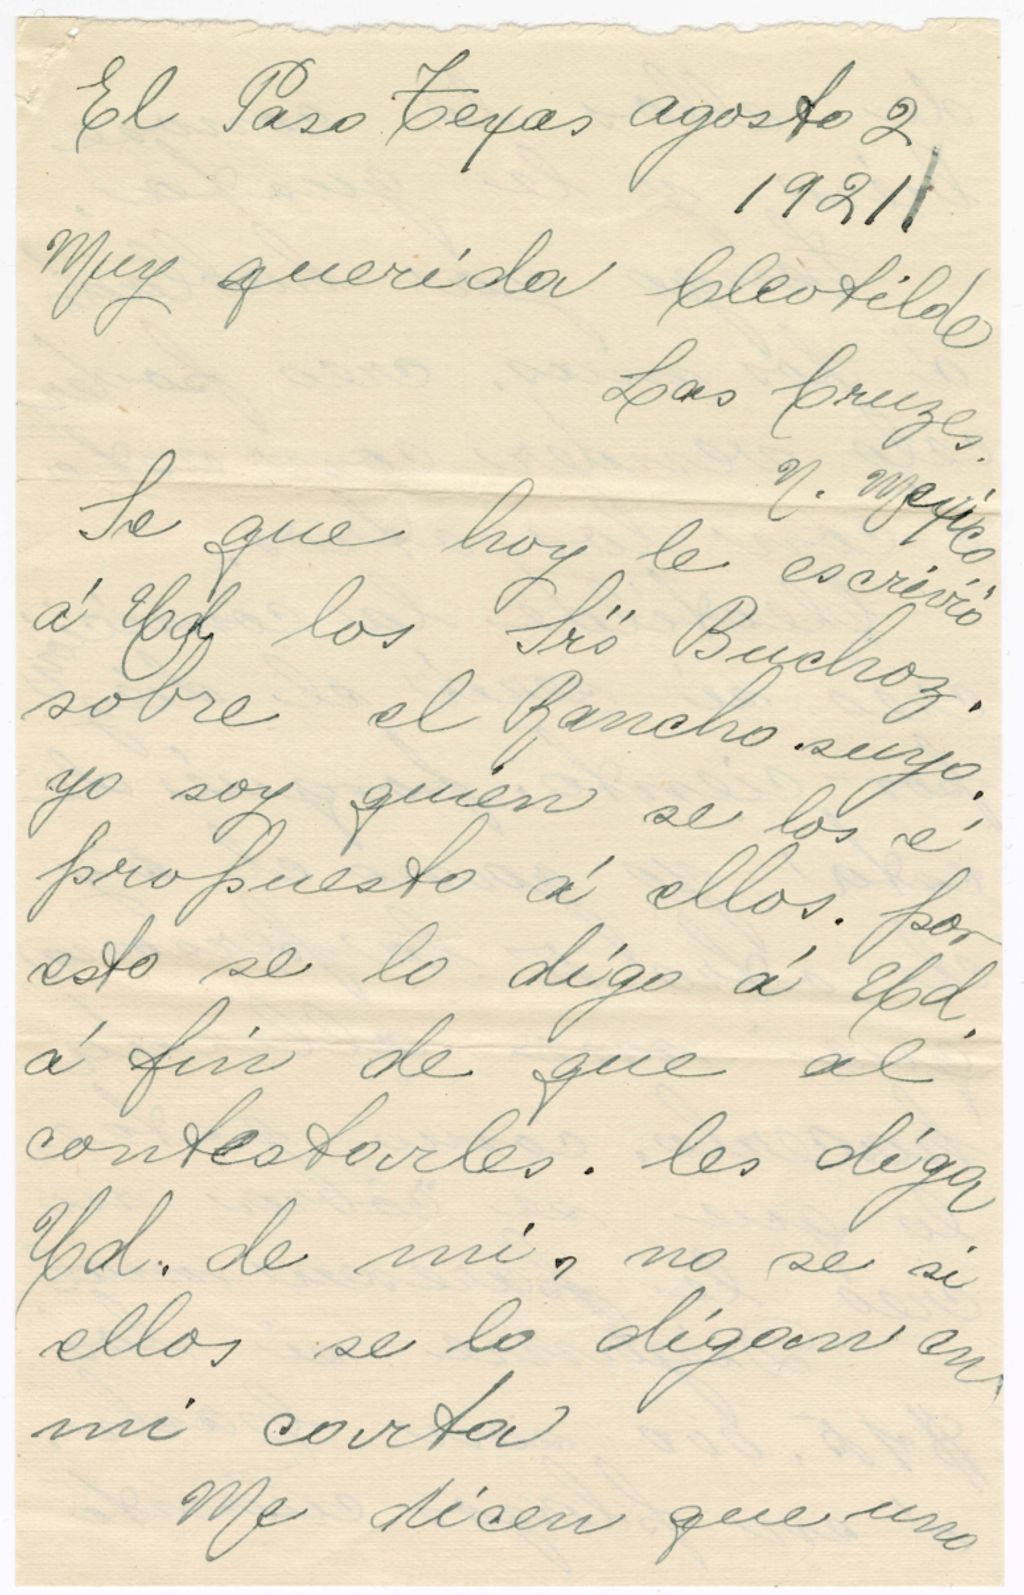 El Paso Texas agosto 2
1921
Muy querida Cleotilde
Las Cruzes.
N. Mexico
Se que hoy le escrivió
á Ud los Srs Buchoz.
sobre el Rancho suyo.
yo soy quien se los é
propuesto á ellos. por
esto se lo digo á Ud.
á fin de que al
contestarles. les diga
Ud. de mi, no se si
ellos se lo digan en
mi carta
Me dicen que uno